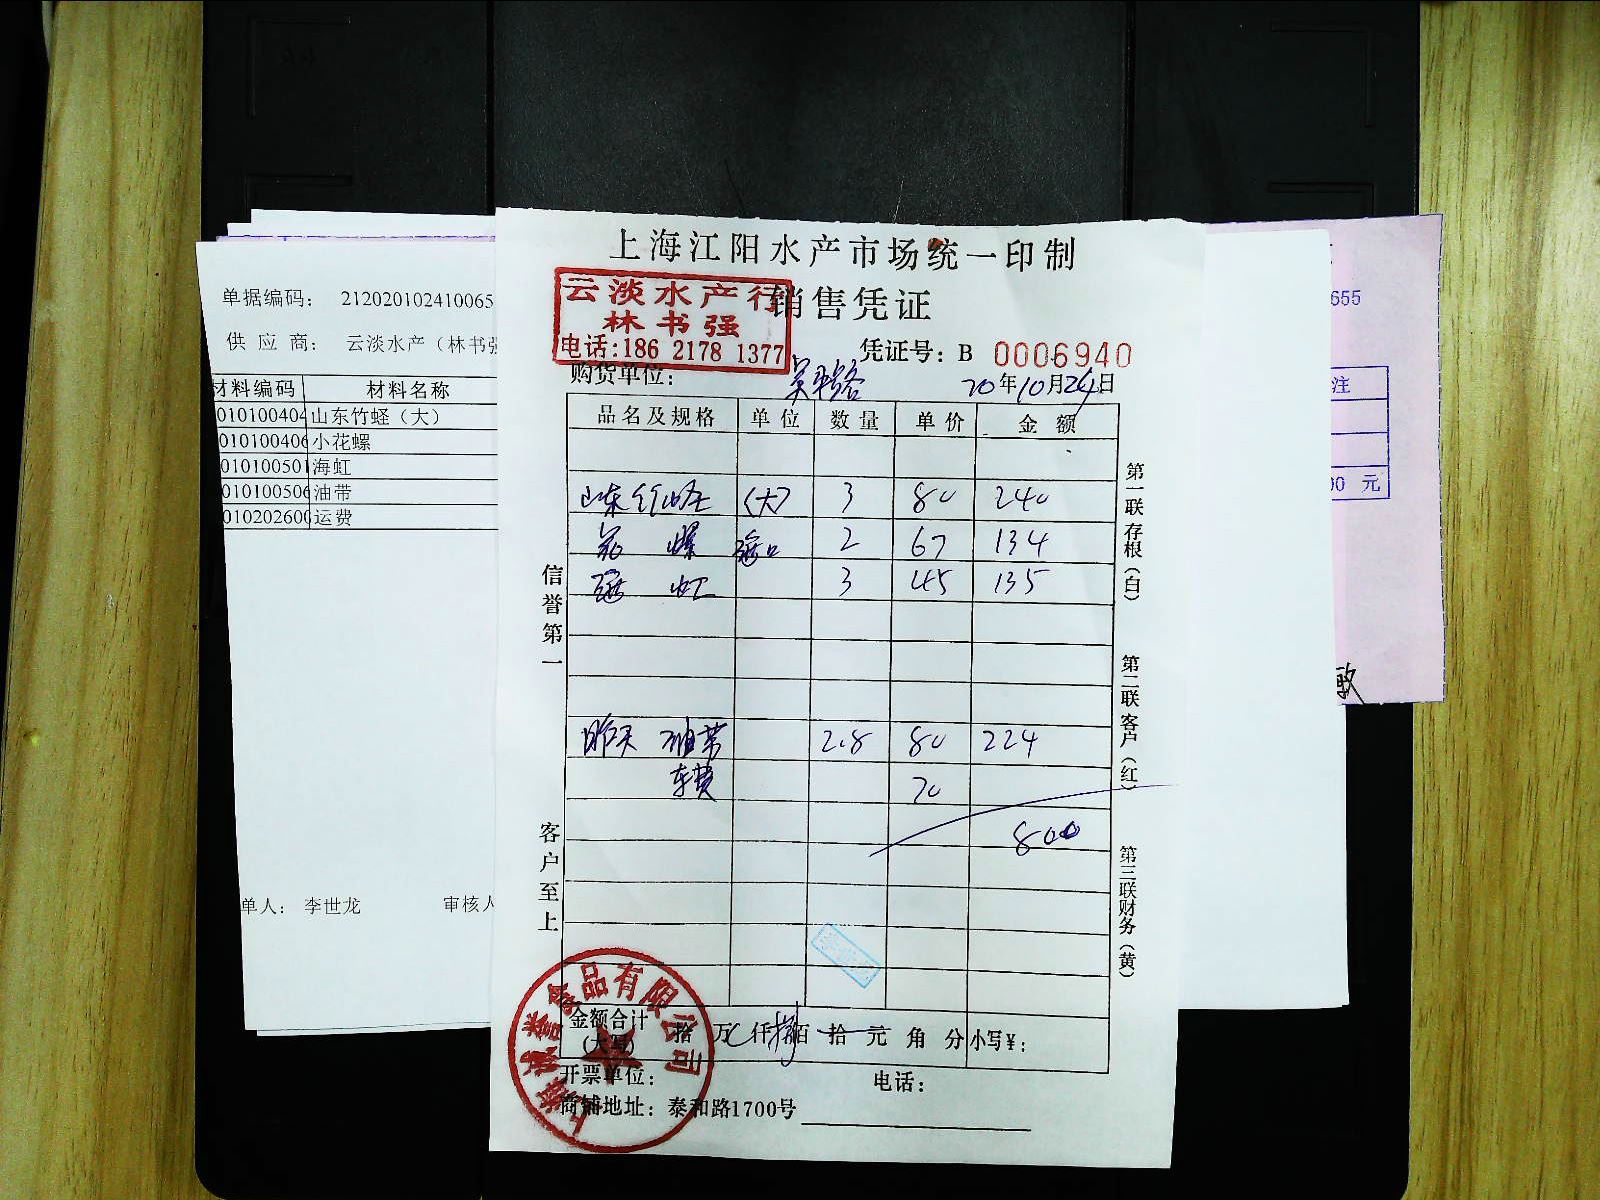 上海江阳水产市场统一印制
销售凭证
云淡水产行
林书强
电话:186 2178 1377
凭证号: B 0006940
购货单位: 吴中路
20年10月24日
品名及规格 单位 数量 单价 金额
山东竹蛏 (大) 3 80 240
花 螺 海口 2 67 134
海 虹 3 45 135
昨天 油带 2.8 80 224
车费 70
800
金额合计(大写) 拾 万 仟 捌佰 拾 元 角 分 小写¥:
开票单位: 电话:
商铺地址: 泰和路1700号
信誉第一
客户至上
第一联存根(白)
第二联客户(红)
第三联财务(黄)
食品有限公司
单据编码: 212020102410065
供应商: 云淡水产(林书强
材料编码 材料名称
010100404 山东竹蛏(大)
010100406 小花螺
010100501 海虹
010100506 油带
010202600 运费
单人: 李世龙 审核人
655
注
00 元
敏